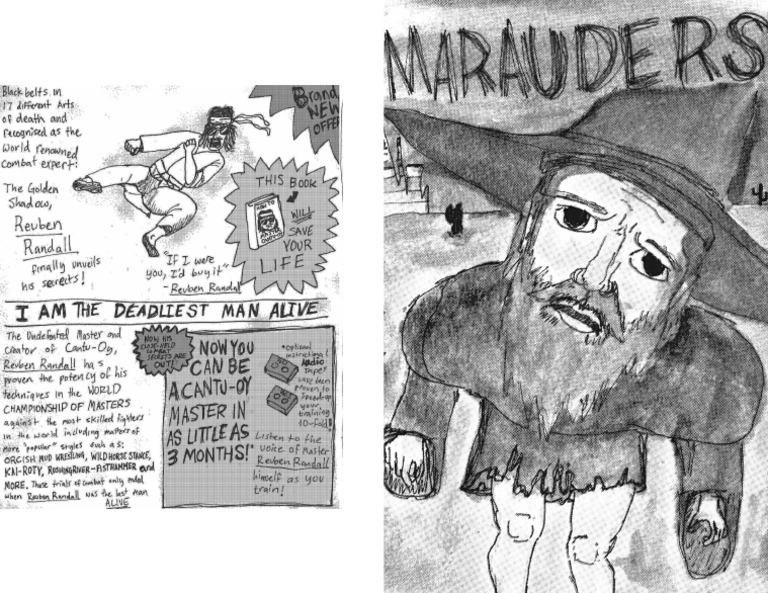 Black belts in
17 different Arts
of death and
recognised as the
world renowned
combat expert:
The Golden
Shadow,
Reuben
Randall
finally unveils
his secrets!
Brand
NEW
OFFER
THIS BOOK
WILL
SAVE
YOUR
LIFE
"IF I were
you, I'd buy it"
- Reuben Randal
I AM THE DEADLIEST MAN ALIVE
The Undefeated Master and
creator of Cantu-Oy,
Reuben Randall has
proven the potency of his
techniques in the WORLD
CHAMPIONSHIP OF MASTERS
against the most skilled fighters
in the world including masters of
more "popular" styles such as:
ORCISH MUD WRESTLING, WILD HORSE STANCE,
KAI-ROTY, RUSHING RIVER-FISTRAMMER and
MORE. These trials of combat only ended
when Reuben Randall was the last man
ALIVE
NOW HIS
CLOSE-HELD
COMBAT
SECRETS ARE
OUT!
NOW YOU
CAN BE
A CANTU-OY
MASTER IN
AS LITTLE AS
3 MONTHS!*
*optional
instructional
Audio
Tapes
have been
proven to
speed up
your
training
10-fold!
Listen to the
voice of Master
Reuben Randall
himself as you
train!
MARAUDERS